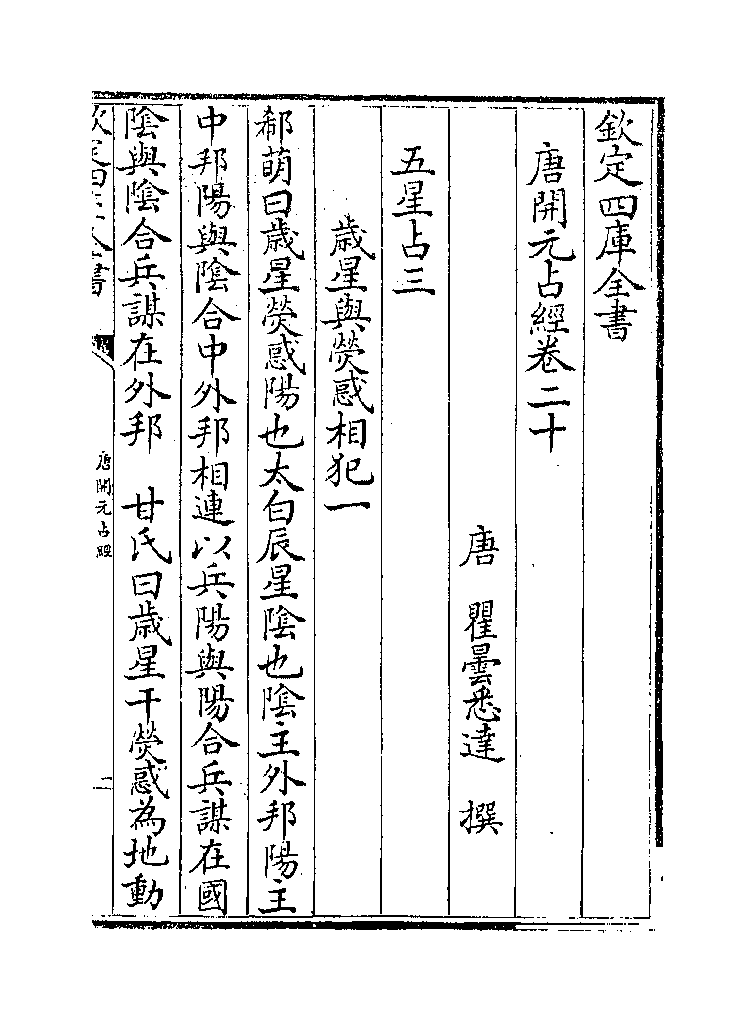 欽定四庫全書
唐開元占經卷二十
唐　瞿曇悉達　撰
五星占三
歲星與熒惑相犯一
郗萌曰歲星熒惑陽也太白辰星隂也隂主外邦陽主
中邦陽與隂合中外邦相連以兵陽與陽合兵謀在國
隂與隂合兵謀在外邦　甘氏曰歲星干熒惑為地動
欽定四庫全書
唐開元占經